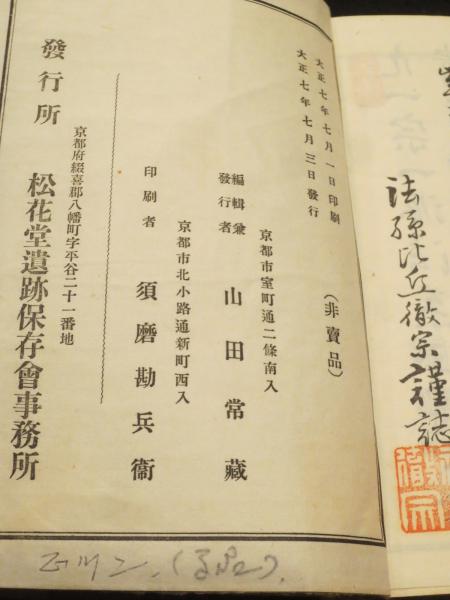 法孫比丘徹宗謹誌
徹宗
大正七年七月一日印刷
大正七年七月三日發行
(非賣品)
京都市室町通二條南入
編輯兼
發行者
山田常藏
京都市北小路通新町西入
印刷者
須磨勘兵衞
發行所
京都府綴喜郡八幡町字平谷二十一番地
松花堂遺跡保存會事務所